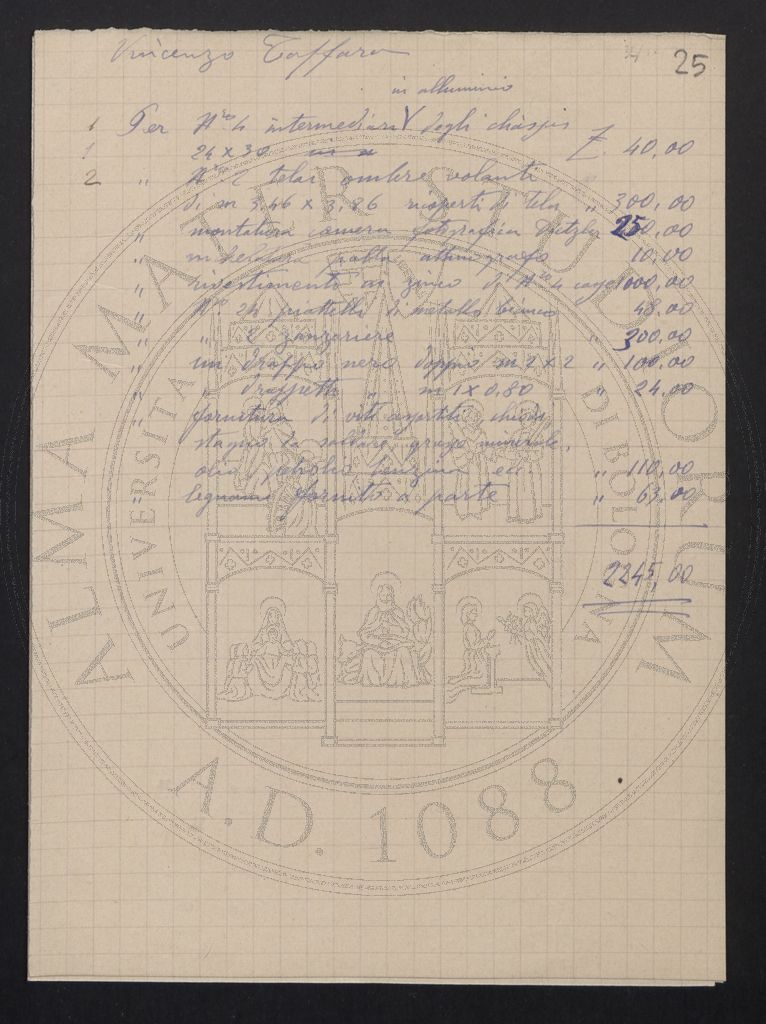 25
Vincenzo Taffara
in alluminio
1 Per N.ro 4 intermediari degli châssis
1 24 x 30 £. 40,00
2 " N.ro 2 telai ombre volanti
di m 3,46 x 3,86 ricoperti di tela " 300,00
" montatura camera fotografica 250,00
palla 10,00
" rivestimento in zinco di N.ro 4 1000,00
" N.ro 24 piattelli di metallo bianco 48,00
" " 2 zanzariere " 300,00
" un drappo nero doppio m 2 x 2 " 100,00
" " drappetto " m 1 x 0,80 " 24,00
" fornitura di viti chiodi
stagno da saldare, grasso minerale,
olio, petrolio benzina ecc. " 110,00
" legname fornito a parte " 63,00
2245,00
ALMA MATER STUDIORUM
UNIVERSITA DI BOLOGNA
A.D. 1088